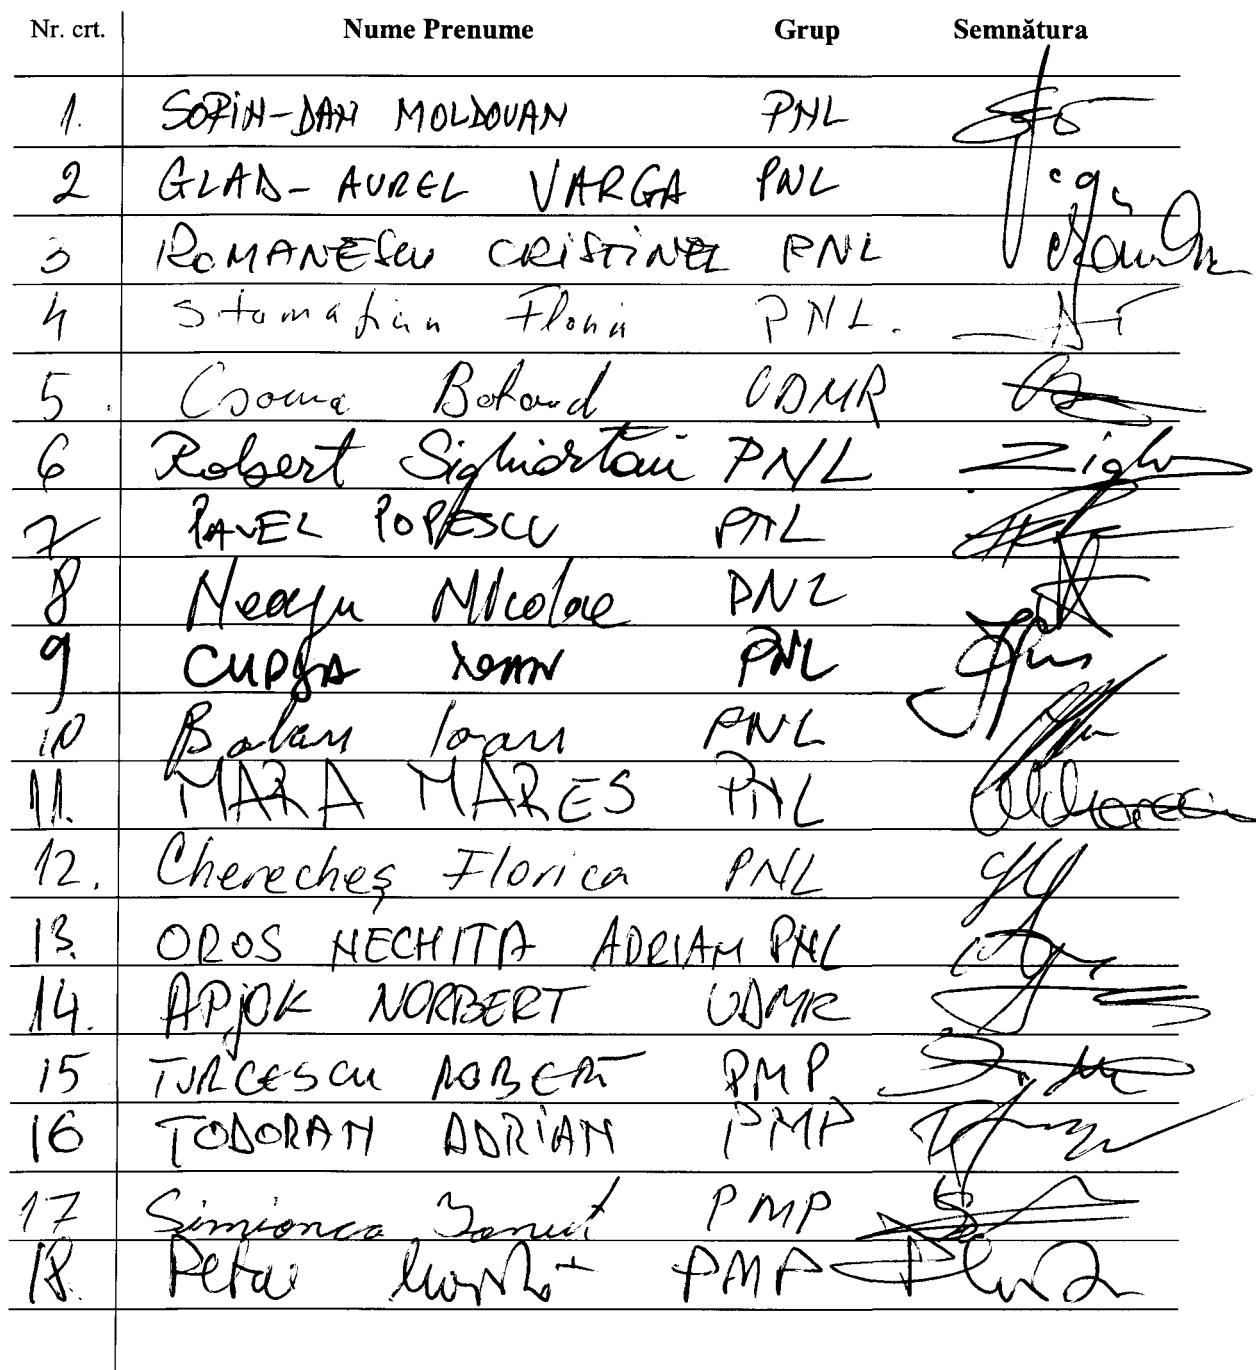 Nr. crt. Nume Prenume Grup Semnătura
1. SORIN-DAN MOLDOVAN PNL
2 GLAD-AUREL VARGA PNL
3 ROMANESCU CRISTINEL PNL
4 Stamatian Florin PNL.
5. Csoma Botond UDMR
6 Robert Sighiartău PNL
7 PAVEL POPESCU PNL
8 Neagu NIcolae PNL
9 CUPȘA IOAN PNL
10 Balan Ioan PNL
11. MARA MAREȘ PNL
12. Cherecheș Florica PNL
13. OROS NECHITA ADRIAN PNL
14. APJOK NORBERT UDMR
15 TURCESCU ROBERT PMP
16 TODORAN ADRIAN PMP
17 Simionca Ionut PMP
18. PMP